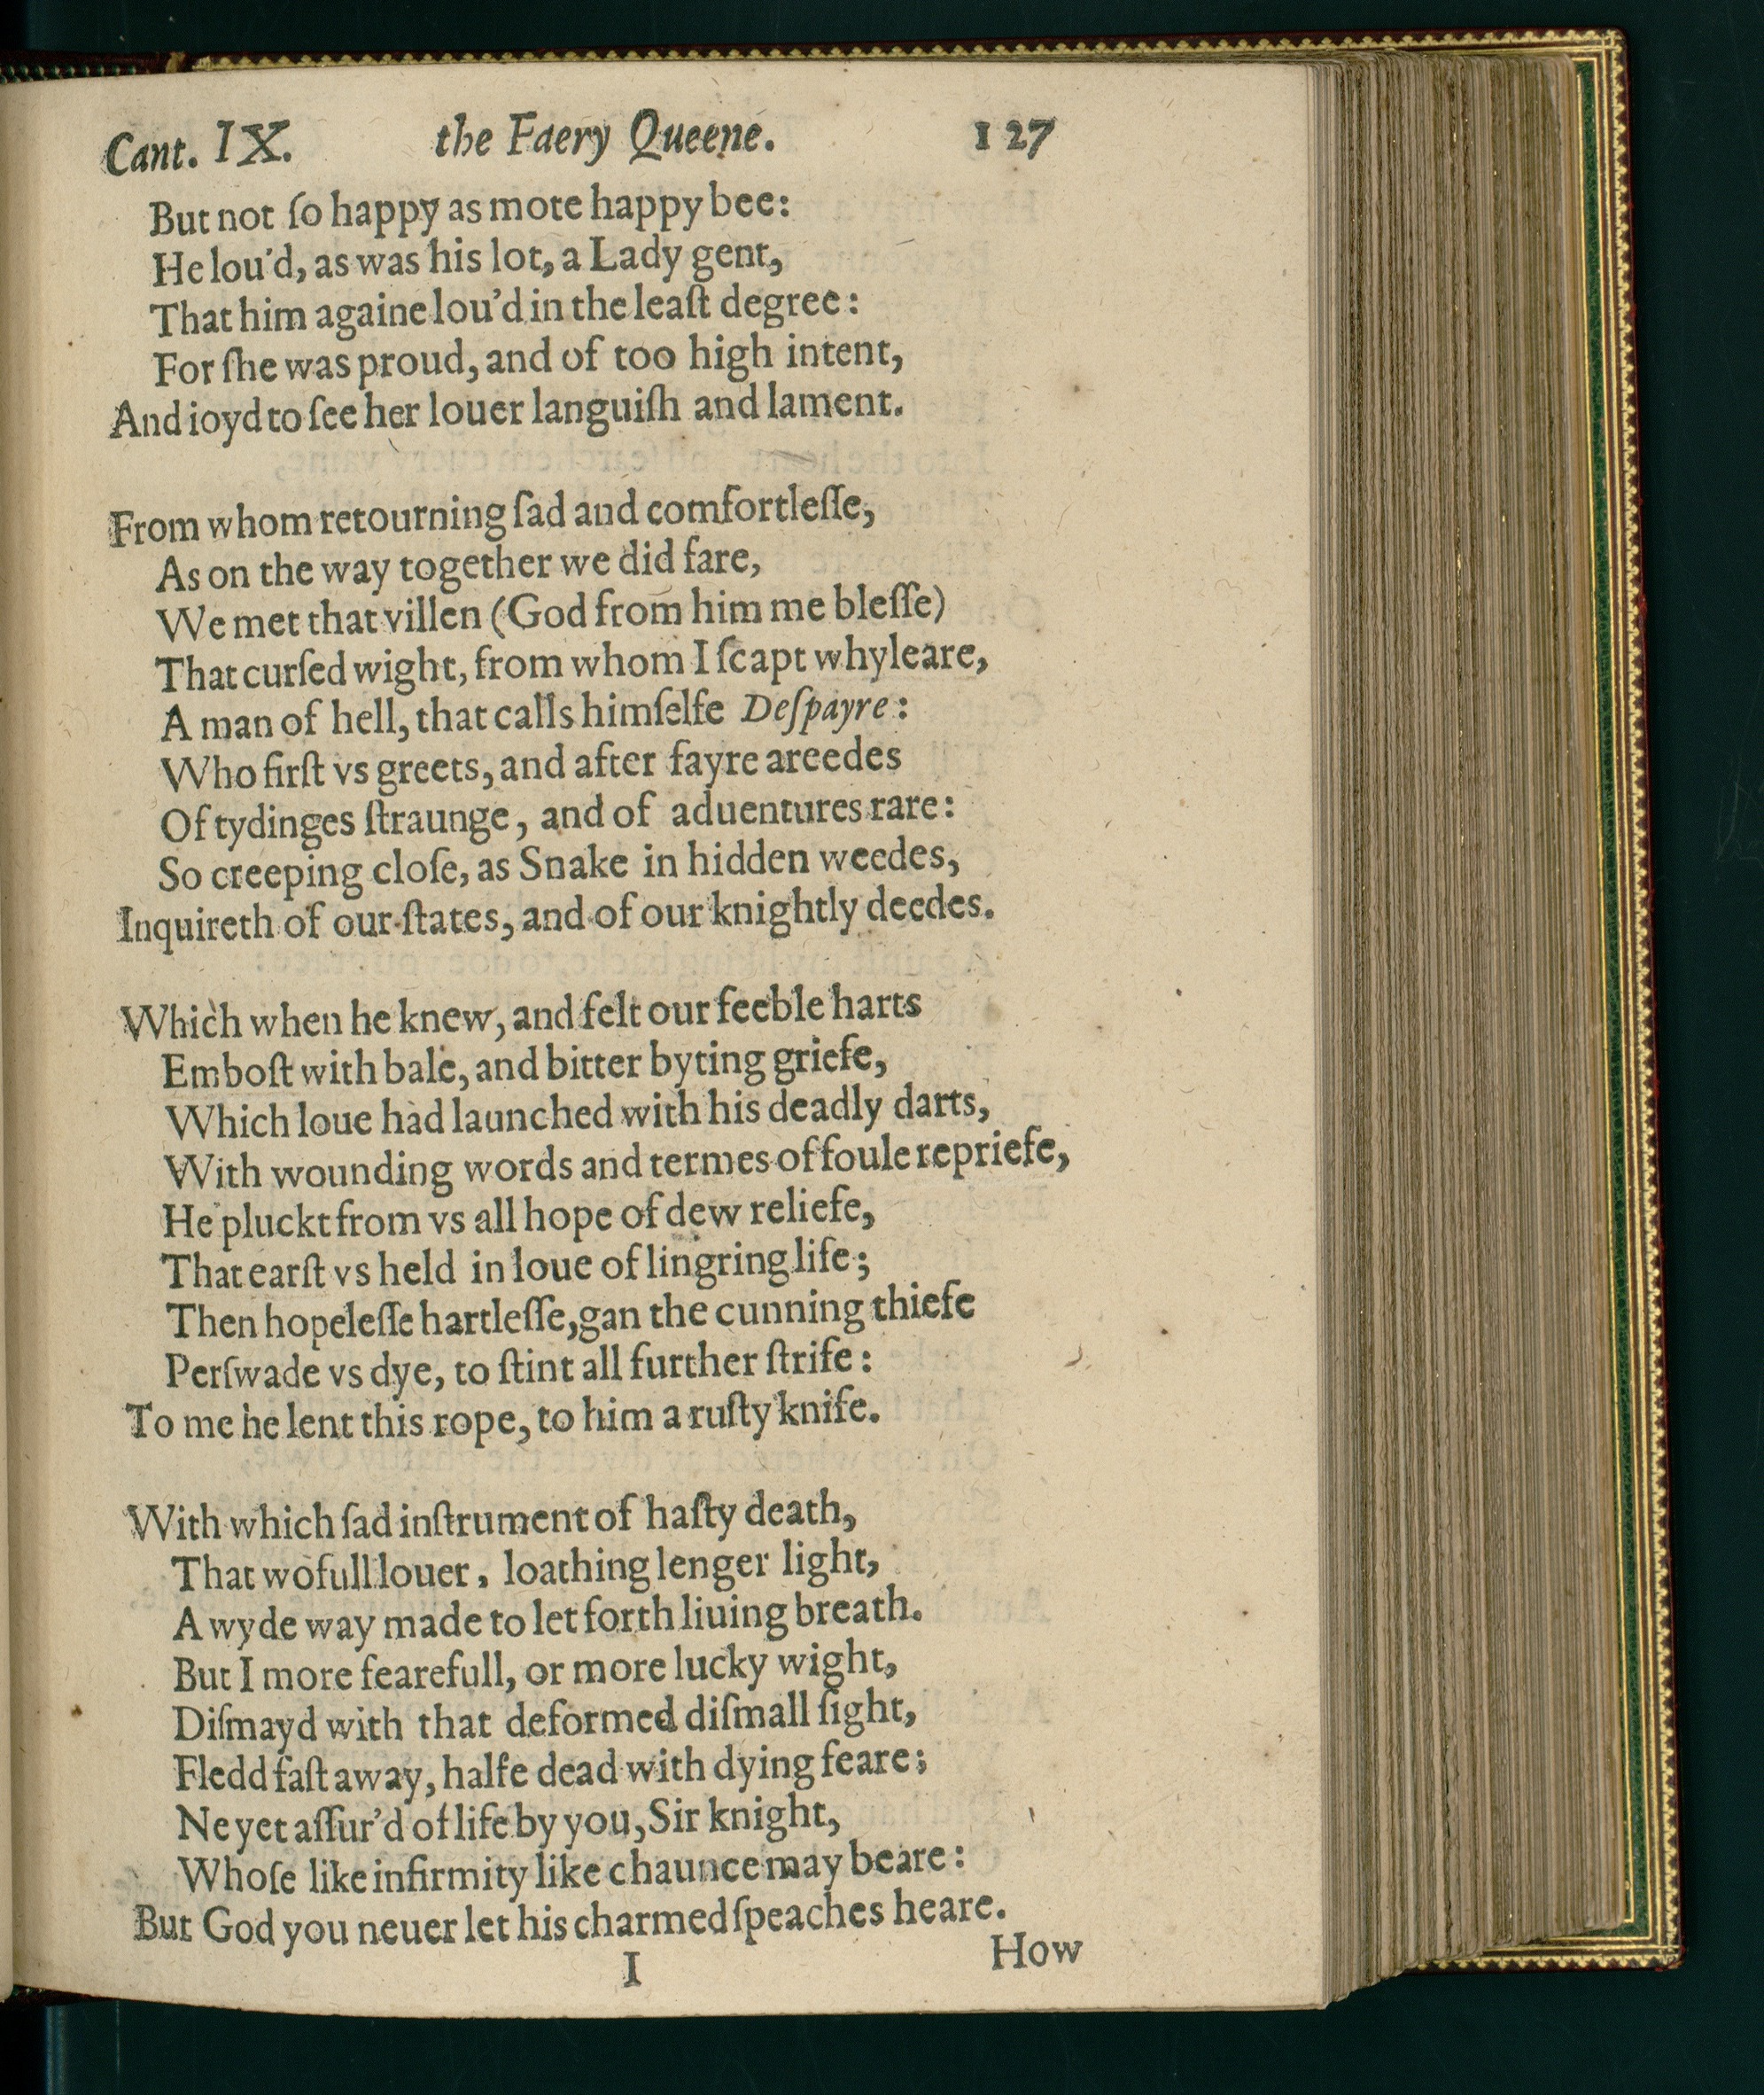 Cant. IX. the Faery Queene. 127
But not ſo happy as mote happy bee:
He lou'd, as was his lot, a Lady gent,
That him againe lou'd in the leaſt degree:
For ſhe was proud, and of too high intent,
And ioyd to ſee her louer languiſh and lament.
From whom retourning ſad and comfortleſſe,
As on the way together we did fare,
We met that villen (God from him me bleſſe)
That curſed wight, from whom I ſcapt whyleare,
A man of hell, that calls himſelfe Deſpayre:
Who firſt vs greets, and after fayre areedes
Of tydinges ſtraunge, and of aduentures rare:
So creeping cloſe, as Snake in hidden weedes,
Inquireth of our ſtates, and of our knightly deedes.
Which when he knew, and felt our feeble harts
Emboſt with bale, and bitter byting griefe,
Which loue had launched with his deadly darts,
With wounding words and termes of foule repriefe,
He pluckt from vs all hope of dew reliefe,
That earſt vs held in loue of lingring life;
Then hopeleſſe hartleſſe, gan the cunning thiefe
Perſwade vs dye, to ſtint all further ſtrife:
To me he lent this rope, to him a ruſty knife.
With which ſad inſtrument of haſty death,
That wofull louer, loathing lenger light,
A wyde way made to let forth liuing breath.
But I more fearefull, or more lucky wight,
Diſmayd with that deformed diſmall ſight,
Fledd faſt away, halfe dead with dying feare;
Ne yet aſſur'd of life by you, Sir knight,
Whoſe like infirmity like chaunce may beare:
But God you neuer let his charmed ſpeaches heare.
I How